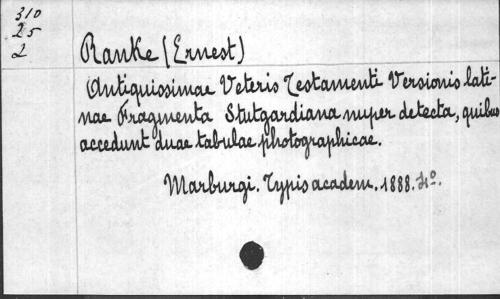 310
25
2
Ranke (Ernest)
Antiquissimae Veteris Testamenti Versionis lati-
nae Fragmenta Stutgardiana nuper detecta, quibus
accedunt duae tabulae photographicae.
Marburgi. Typis academ. 1888. 4º.